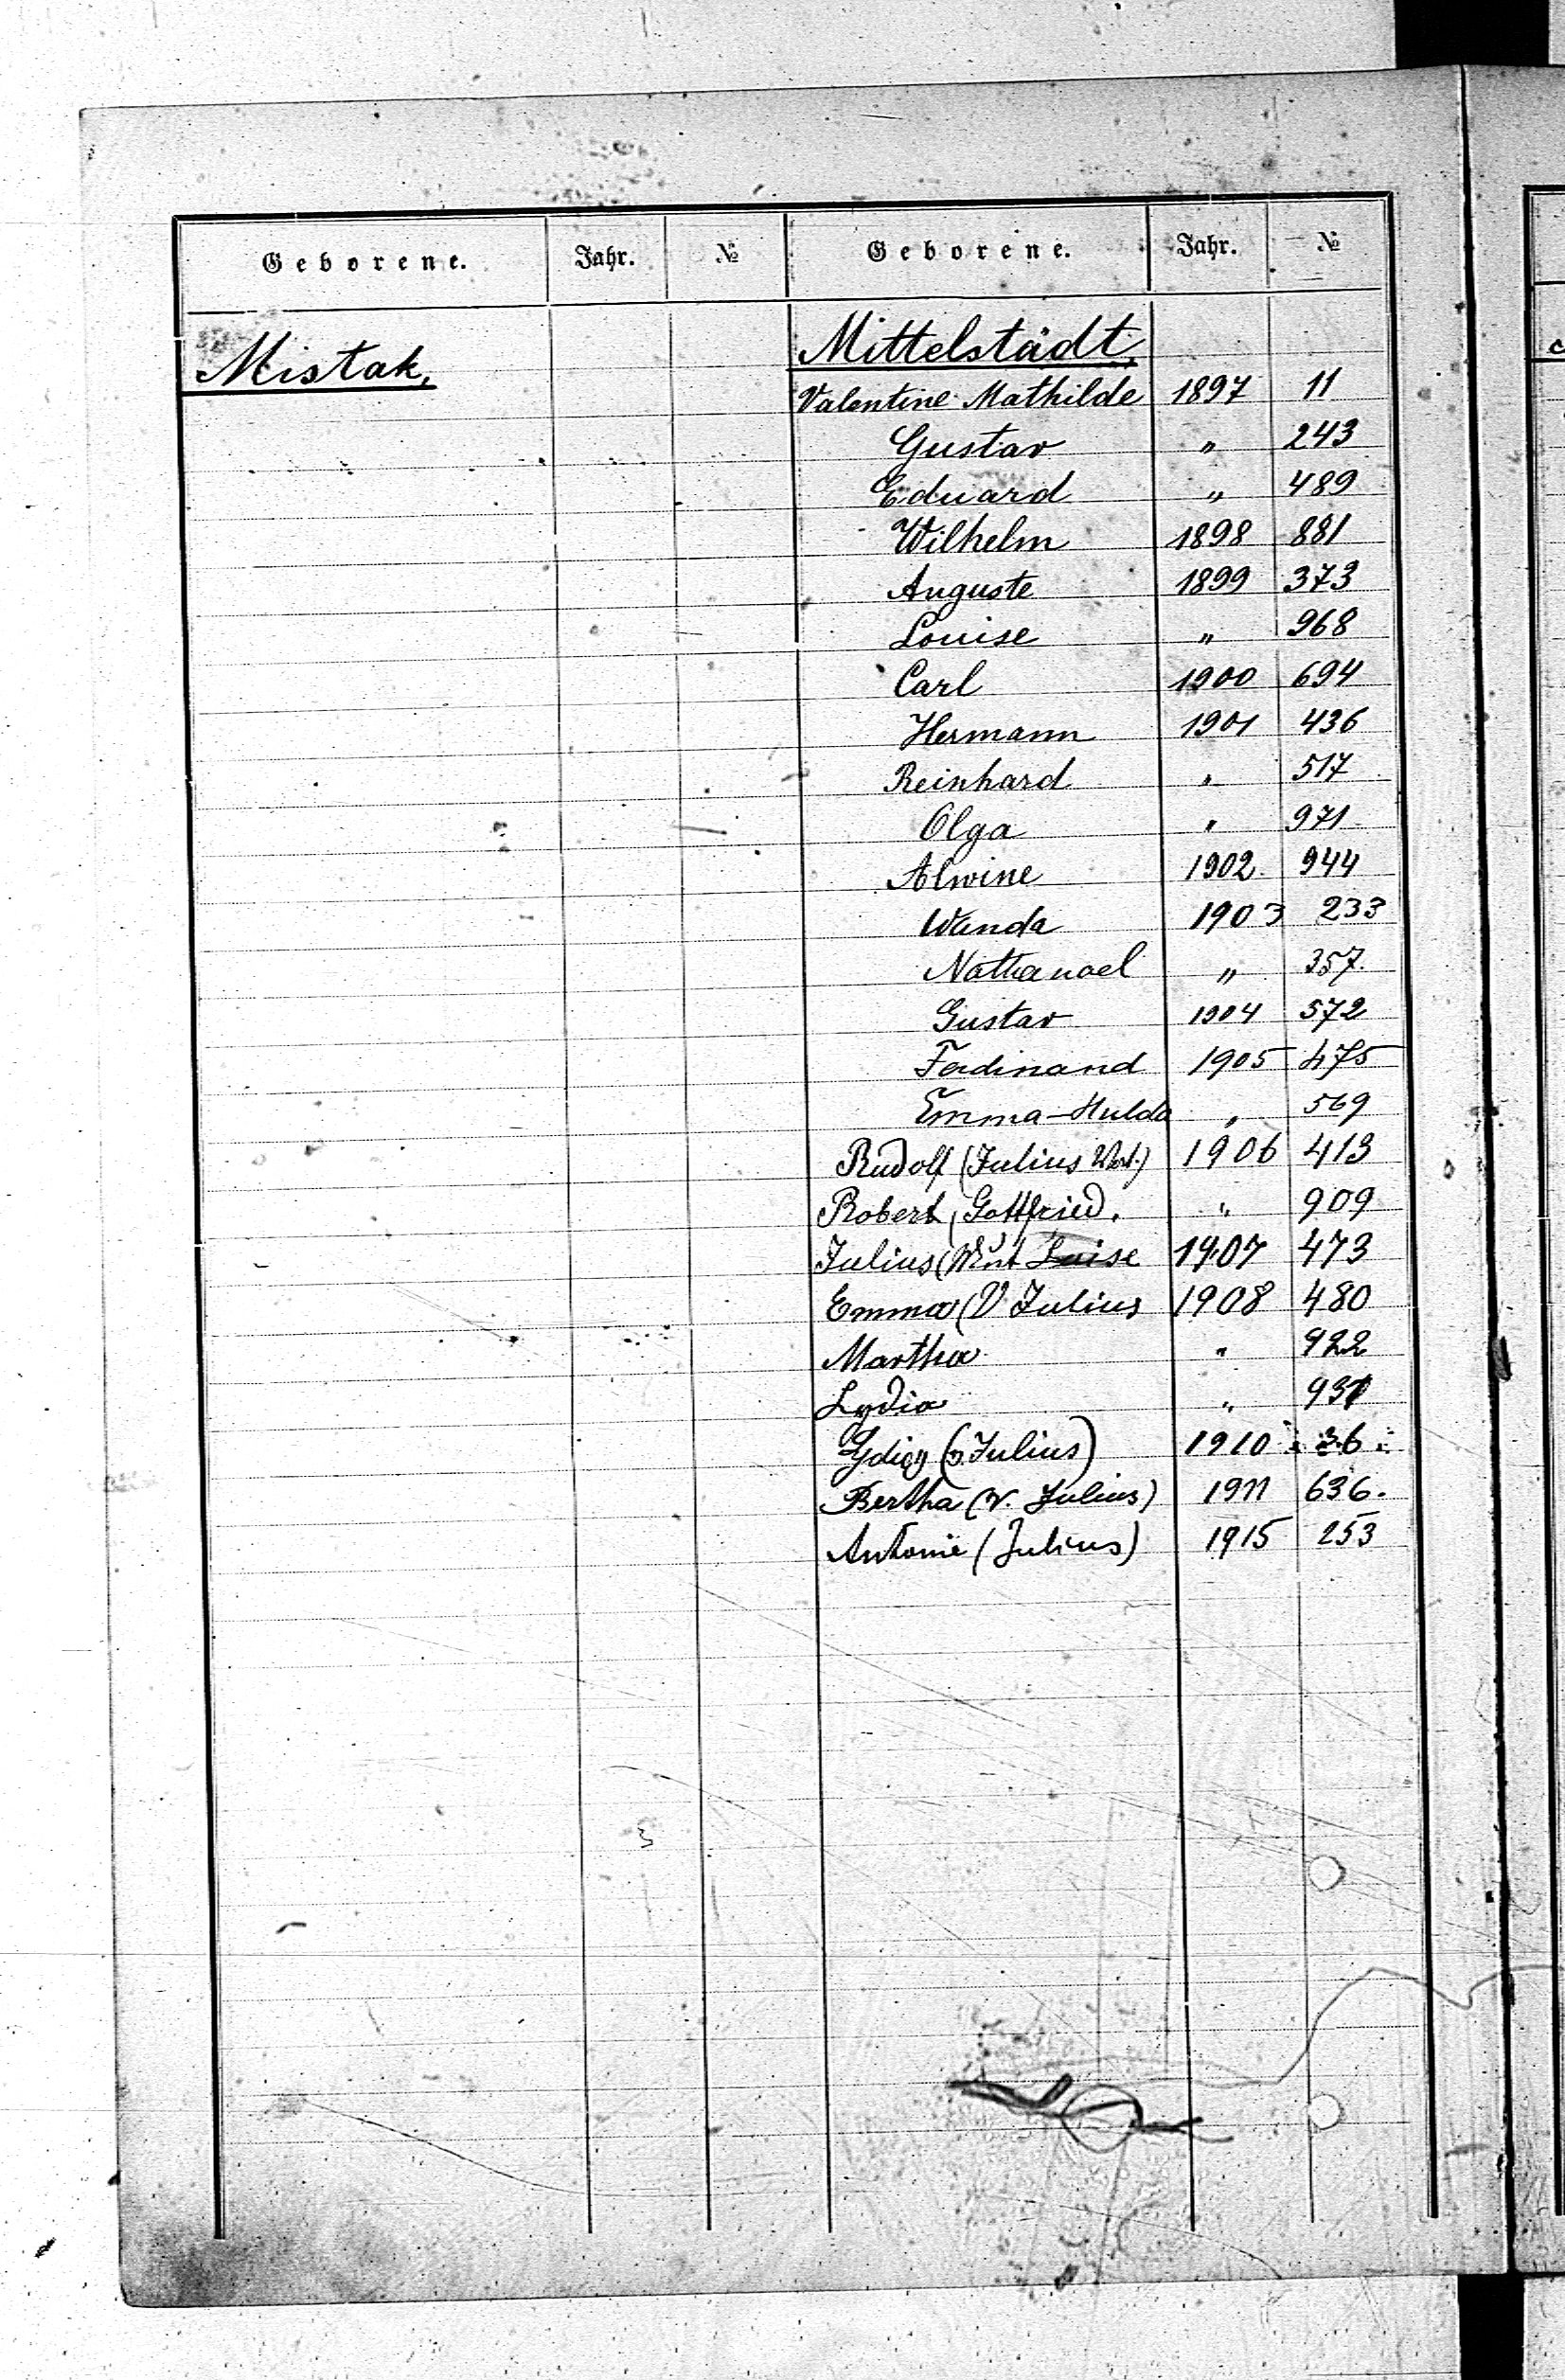 Geborene. Jahr. № Geborene. Jahr. №
Mistak,
Mittelstädt,
Valentine Mathilde 1897 11
Gustav " 243
Eduard " 489
Wilhelm 1898 881
Auguste 1899 373
Louise " 968
Carl 1900 694
Hermann 1901 436
Reinhard " 517
Olga " 971
Alwine 1902 944
Wanda 1903 233
Nathanael " 357.
Gustav 1904 572
Ferdinand 1905 475
Emma-Hulda " 569
Rudolf (Julius 1906 413
Robert, Gottfried. " 909
Julius ( Luise 1907 473
Emma (V Julius 1908 480
Martha " 922
Lydia " 931
(v. Julius) 1910 36
Bertha (v. Julius) 1911 636.
Antonie (Julius) 1915 253